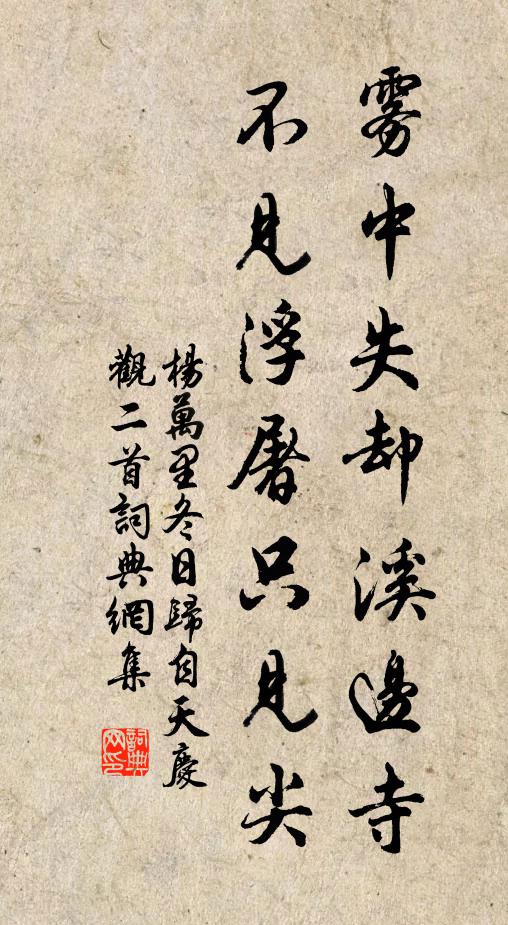 霧中失却溪邊寺
不見浮屠只見尖
楊萬里冬日歸自天慶
觀二首詞典網集
詞典網印